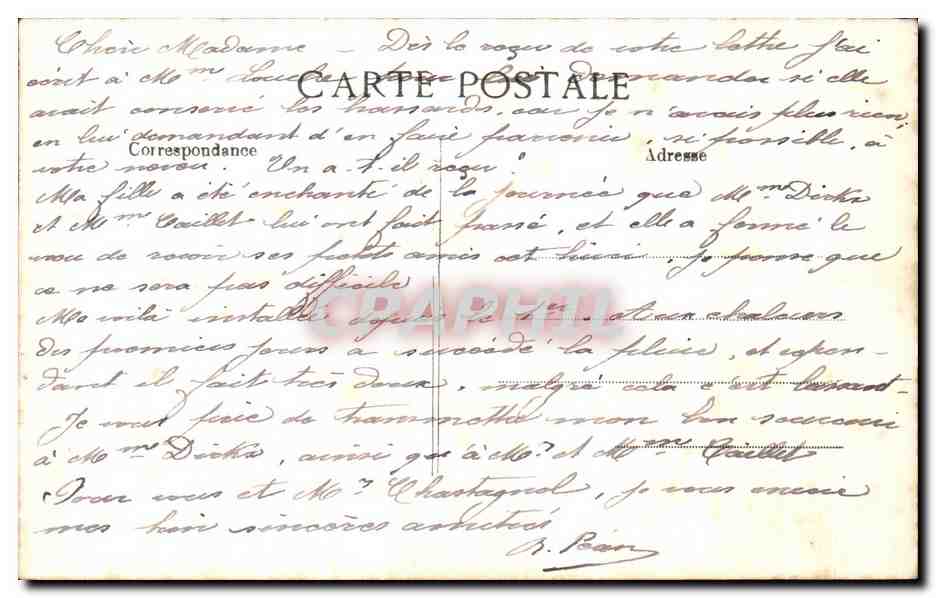 Chère Madame – Dès le reçu de votre lettre j'ai
écrit à Mme pour lui demander si elle
CARTE POSTALE
avait conservé les hasards, car je n'avais plus rien,
en lui demandant d'en faire parvenir, si possible, à
Correspondance
Adresse
votre neveu. En a-t-il reçu ?
Ma fille a été enchanté de la journée que Mme Dicks
et Mme Caillet lui ont fait passé, et elle a formé le
vœu de revoir ses petits amis cet hiver, je pense que
ce ne sera pas difficile
CRAPHIL
Me voilà installée depuis le 1er. Aux chaleurs
des premiers jours a succédé la pluie, et cepen-
dant il fait très doux, malgré cela c'est lassant-
Je vous prie de transmettre mon bon souvenir
à Mme Dicks, ainsi qu'à Mr et Mme Caillet
Pour vous et Mr Chastagnol, je vous envoie
mes bien sincères amitiés
R. Péan